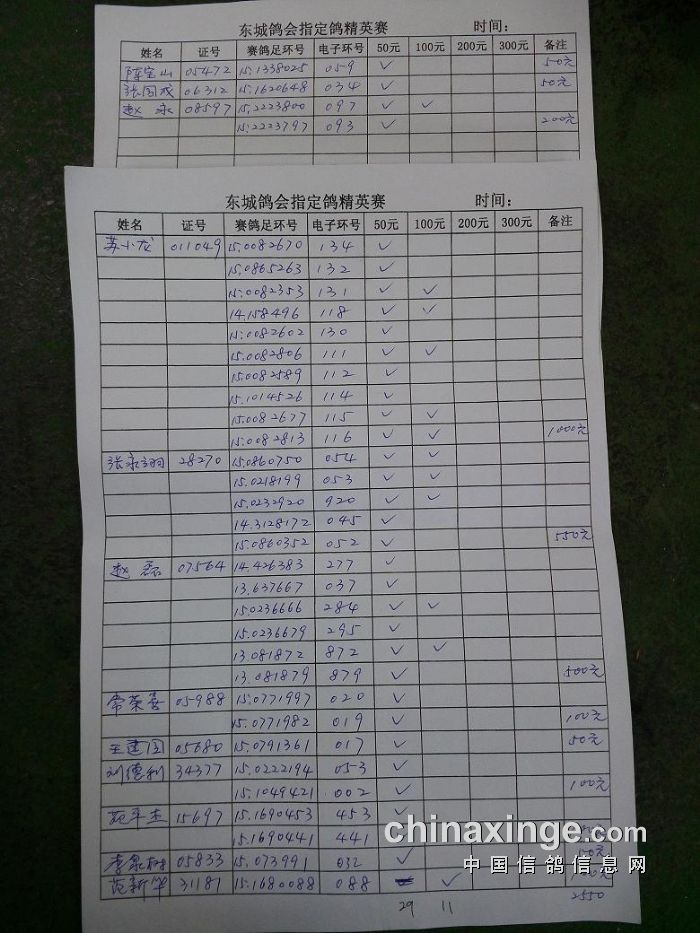 东城鸽会指定鸽精英赛 时间：
姓名 证号 赛鸽足环号 电子环号 50元 100元 200元 300元 备注
陈宝山 05472 15.1338025 059 ✓ 50元
张国成 06312 15.1620648 034 ✓ 50元
赵永 08597 15.2223800 097 ✓ ✓
15.2223797 093 ✓ 200元
东城鸽会指定鸽精英赛 时间：
姓名 证号 赛鸽足环号 电子环号 50元 100元 200元 300元 备注
苏小龙 011049 15.0082670 134 ✓
15.0865263 132 ✓
15.0082353 131 ✓ ✓
14.158496 118 ✓ ✓
15.0082602 130 ✓
15.0082806 111 ✓ ✓
15.0082589 112 ✓
15.1014526 114 ✓
15.0082677 115 ✓ ✓
15.0082813 116 ✓ ✓ 1000元
张永翔 28270 15.0860750 054 ✓ ✓
15.0218199 053 ✓ ✓
15.0232920 920 ✓ ✓
14.3128172 045 ✓
15.0860352 052 ✓ 550元
赵磊 07564 14.426383 277 ✓
13.637667 037 ✓
15.0236666 284 ✓ ✓
15.0236679 295 ✓
13.081872 872 ✓ ✓
13.081879 879 ✓ 500元
常荣喜 05988 15.0771997 020 ✓
15.0771982 019 ✓ 100元
王建国 05680 15.0791361 017 ✓ 50元
刘德利 34377 15.0222194 053 ✓
15.1049421 002 ✓ 100元
范平杰 15697 15.1690453 453 ✓
15.1690441 441 ✓
05833 15.073991 032 ✓ 50元
范新华 31181 15.1680088 088 ✓
29 11 2550
chinaxinge.com
中国信鸽信息网